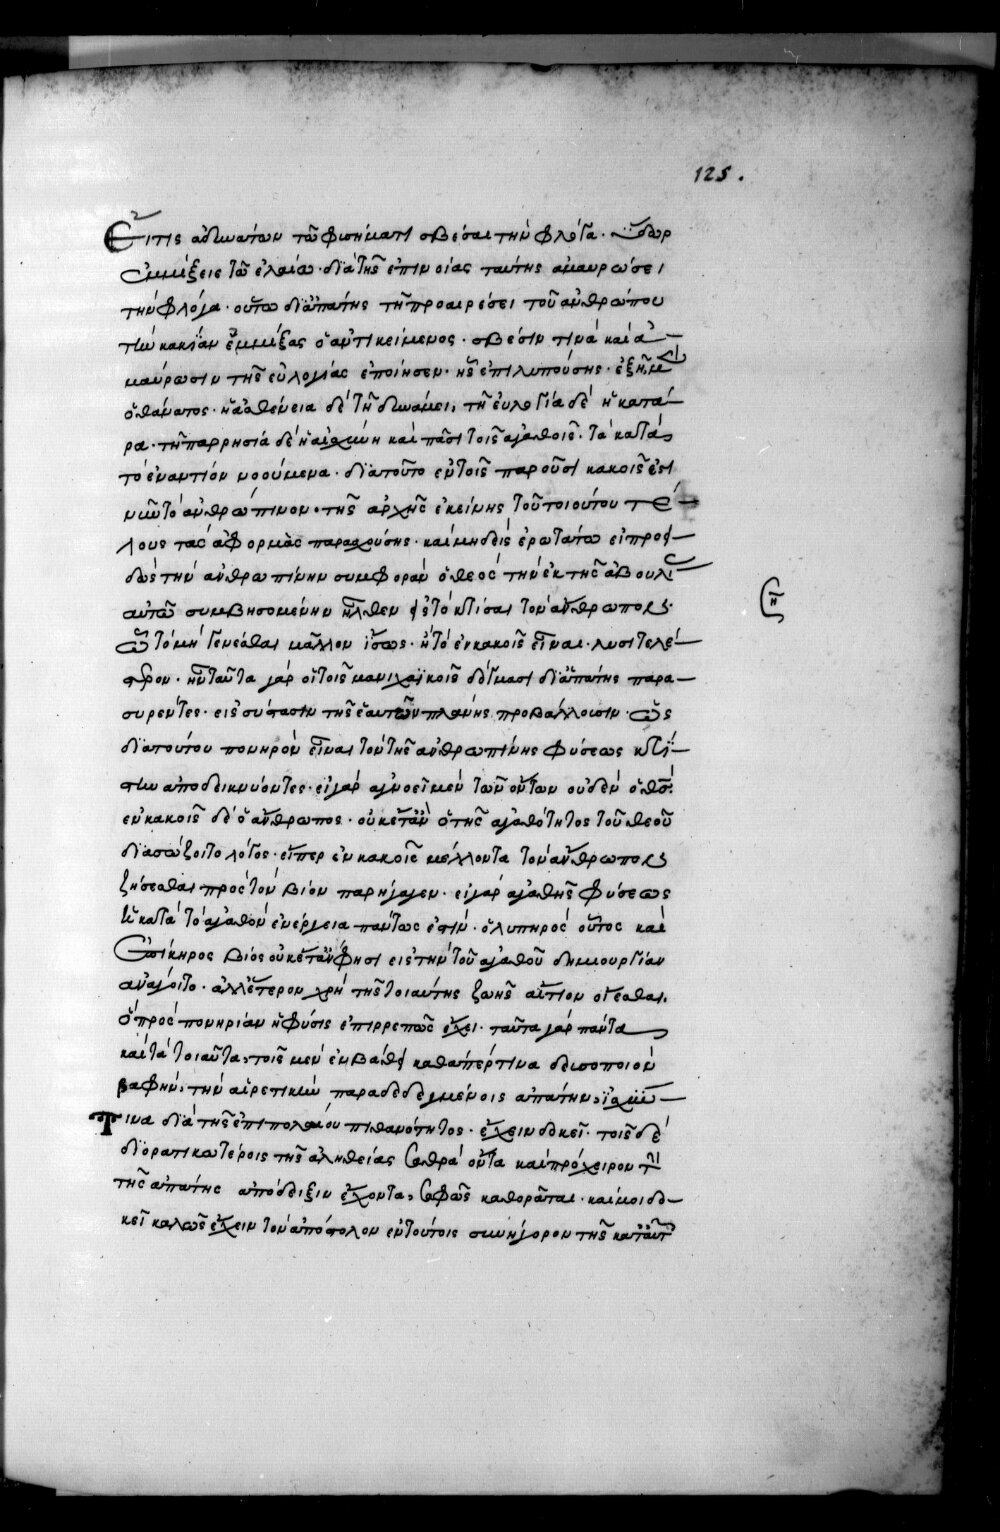 125.
Εἴ τις ἀδυνατῶν τῷ φυσήματι σβέσαι τὴν φλόγα· ὕδωρ
ἐμμίξειε τῷ ἐλαίῳ· διὰ τῆς ἐπινοίας ταύτης ἀμαυρώσει
τὴν φλόγα· οὕτω δι' ἀπάτης τῇ προαιρέσει τοῦ ἀνθρώπου
τὴν κακίαν ἐμμίξας ὁ ἀντικείμενος· σβέσιν τινὰ καὶ ἀ-
μαύρωσιν τῆς εὐλογίας ἐποίησεν· ἧς ἐπιλιπούσης·
ὁ θάνατος· ἡ ἀσθένεια δὲ τῇ δυνάμει, τῇ εὐλογίᾳ δὲ ἡ κατά-
ρα· τῇ παρρησίᾳ δὲ ἡ αἰσχύνη καὶ πᾶσι τοῖς ἀγαθοῖς· τὰ κατὰ
τὸ ἐναντίον νοούμενα· διὰ τοῦτο ἐν τοῖς παροῦσι κακοῖς ἐστι
νῦν τὸ ἀνθρώπινον· τῆς ἀρχῆς ἐκείνης τοῦ τοιούτου τέ-
λους τὰς ἀφορμὰς παρασχούσης· καὶ μηδεὶς ἐρωτάτω εἰ προει-
δὼς τὴν ἀνθρωπίνην συμφορὰν ὁ θεὸς τὴν ἐκ τῆς ἀβουλί
αὐτῷ συμβησομένην ἦλθεν εἰς τὸ κτίσαι τὸν ἄνθρωπον·
ᾧ τὸ μὴ γενέσθαι μᾶλλον ἴσως· ἢ τὸ ἐν κακοῖς εἶναι· λυσιτελέ-
στερον· ταῦτα γὰρ οἱ τοῖς μανιχαϊκοῖς δόγμασι δι' ἀπάτης παρα-
συρέντες· εἰς σύστασιν τῆς ἑαυτῶν πλάνης προβάλλουσιν· ὡς
διὰ τούτου πονηρὸν εἶναι τὸν τῆς ἀνθρωπίνης φύσεως κτί-
στην ἀποδεικνύοντες· εἰ γὰρ ἀγνοεῖ μὲν τῶν ὄντων οὐδὲν ὁ θς·
ἐν κακοῖς δὲ ὁ ἄνθρωπος· οὐκέτ' ἂν ὁ τῆς ἀγαθότητος τοῦ θεοῦ
διασώζοιτο λόγος· εἴπερ ἐν κακοῖς μέλλοντα τὸν ἄνθρωπον
ζήσεσθαι πρὸς τὸν βίον παρήγαγεν· εἰ γὰρ ἀγαθῆς φύσεως
ἡ κατὰ τὸ ἀγαθὸν ἐνέργεια πάντως ἐστίν· ὁ λυπηρὸς οὗτος καὶ
ἐπίκηρος βίος οὐκέτ' ἂν φησι εἰς τὴν τοῦ ἀγαθοῦ δημιουργίαν
ἀνάγοιτο· ἀλλ' ἕτερον χρὴ τῆς τοιαύτης ζωῆς αἴτιον οἴεσθαι,
ᾧ πρὸς πονηρίαν ἡ φύσις ἐπιρρεπῶς ἔχει· ταῦτα γὰρ πάντα
καὶ τὰ τοιαῦτα, τοῖς μὲν ἐν βάθει καθάπερ τινα δευσοποιὸν
βαφὴν, τὴν αἱρετικὴν παραδεδεγμένοις ἀπάτην, ἰσχύν
τινα διὰ τῆς ἐπιπολαίου πιθανότητος· ἔχειν δοκεῖ· τοῖς δὲ
διορατικωτέροις τῆς ἀληθείας σαθρὰ ὄντα καὶ πρόχειρον τὴν
τῆς ἀπάτης ἀπόδειξιν ἔχοντα, σαφῶς καθορᾶται· καί μοι δο-
κεῖ καλῶς ἔχειν τὸν ἀπόστολον ἐν τούτοις συνήγορον τῆς κατ' αὐτ